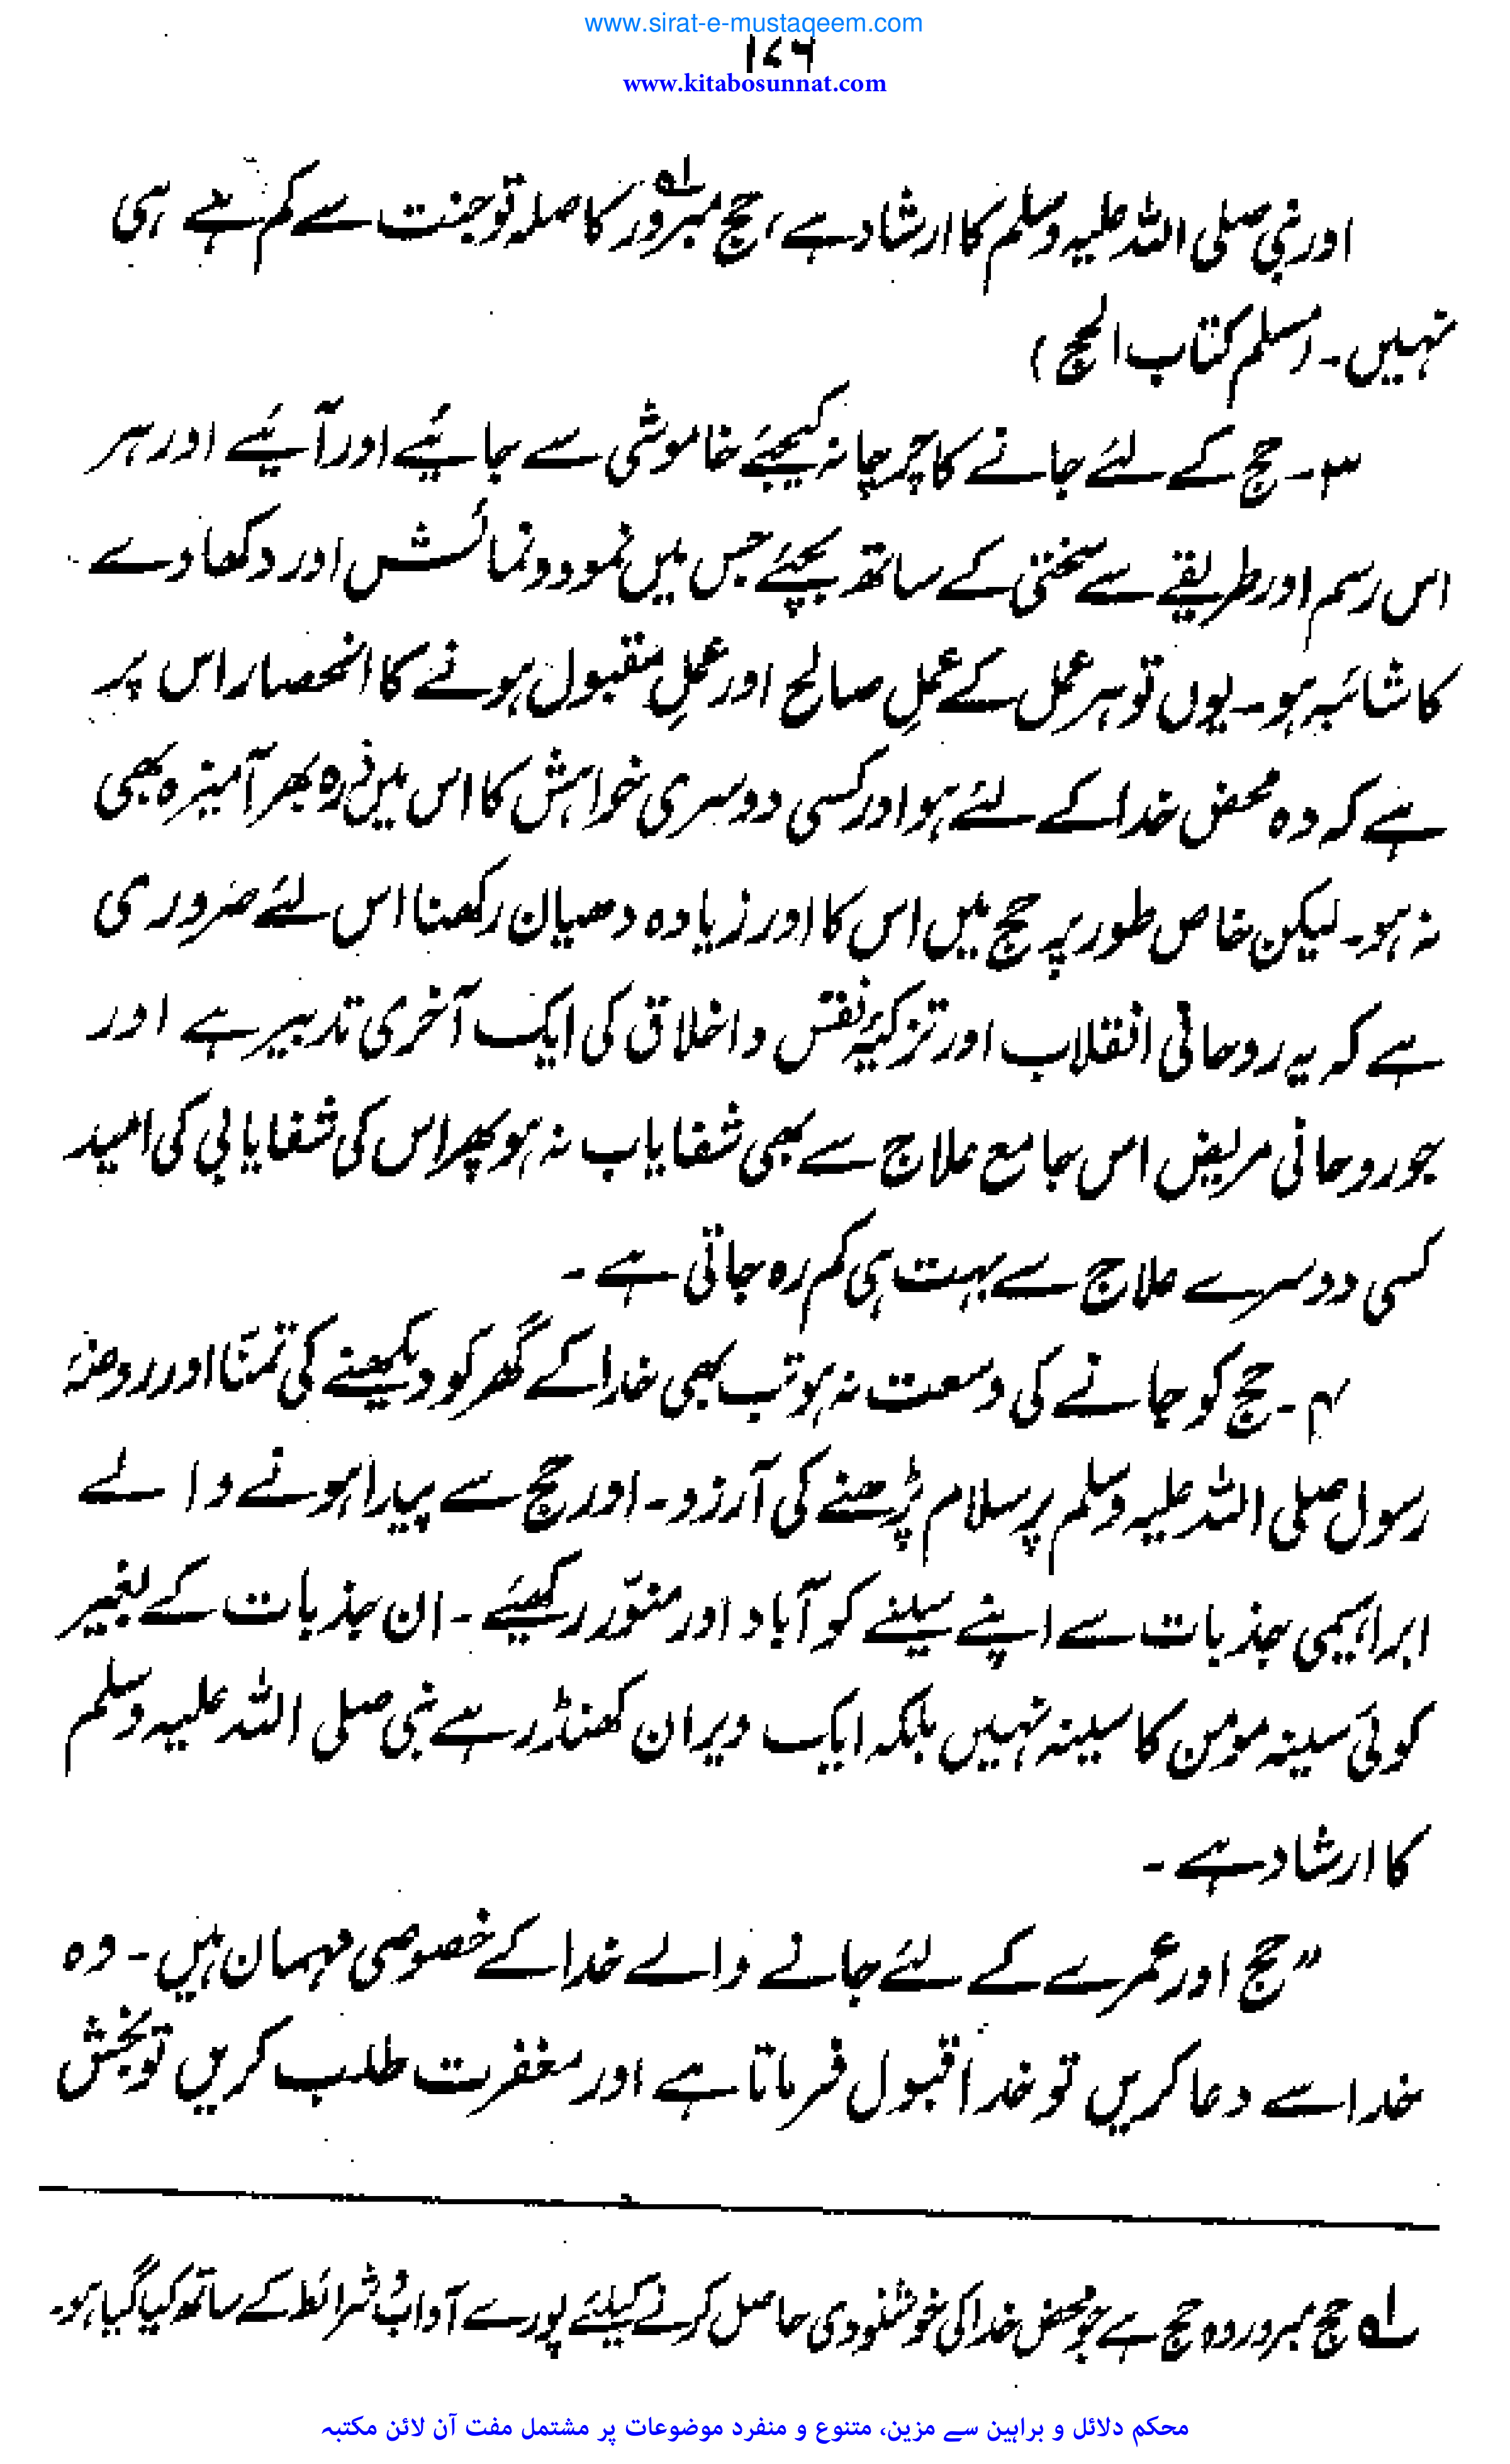 www.sirat-e-mustaqeem.com
۱۷۶
www.kitabosunnat.com
اور نبی صلی اللہ علیہ وسلم کا ارشاد ہے، حج مبرور۱؎ کا صلہ تو جنت سے کم ہے ہی
نہیں۔ (مسلم کتاب الحج)
۳۔ حج کے لئے جانے کا چرچا نہ کیجئے خاموشی سے جائیے اور آئیے اور ہر
اس رسم اور طریقے سے سختی کے ساتھ بچئے جس میں نمود و نمائش اور دکھاوے
کا شائبہ ہو۔ یوں تو ہر عمل کے عملِ صالح اور عملِ مقبول ہونے کا انحصار اس پر
ہے کہ وہ محض خدا کے لئے ہو اور کسی دوسری خواہش کا اس میں ذرہ بھر آمیزہ بھی
نہ ہو۔ لیکن خاص طور پر حج میں اس کا اور زیادہ دھیان رکھنا اس لئے ضروری
ہے کہ یہ روحانی انقلاب اور تزکیۂ نفس و اخلاق کی ایک آخری تدبیر ہے اور
جو روحانی مریض اس جامع علاج سے بھی شفایاب نہ ہو پھر اس کی شفایابی کی امید
کسی دوسرے علاج سے بہت ہی کم رہ جاتی ہے۔
۴۔ حج کو جانے کی وسعت نہ ہو تب بھی خدا کے گھر کو دیکھنے کی تمنّا اور روضۂ
رسول صلی اللہ علیہ وسلم پر سلام پڑھنے کی آرزو۔ اور حج سے پیدا ہونے والے
ابراہیمی جذبات سے اپنے سینے کو آباد اور منوّر رکھیئے۔ ان جذبات کے بغیر
کوئی سینہ مومن کا سینہ نہیں بلکہ ایک ویران کھنڈر ہے نبی صلی اللہ علیہ وسلم
کا ارشاد ہے۔
”حج اور عمرے کے لئے جانے والے خدا کے خصوصی مہمان ہیں۔ وہ
خدا سے دعا کریں تو خدا قبول فرماتا ہے اور مغفرت طلب کریں تو بخش
۱؎ حج مبرور وہ حج ہے جو محض خدا کی خوشنودی حاصل کرنے کیلئے پورے آداب و شرائط کے ساتھ کیا گیا ہو۔
محکم دلائل و براہین سے مزین، متنوع و منفرد موضوعات پر مشتمل مفت آن لائن مکتبہ